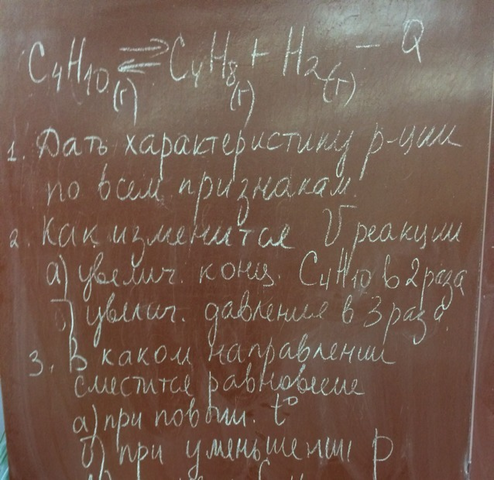 C4H10(г) ⇌ C4H8(г) + H2(г) − Q
1. Дать характеристику р-ции
по всем признакам.
2. Как изменится V реакции
а) увелич. конц. C4H10 в 2 раза
б) увелич. давления в 3 раза.
3. В каком направлении
сместится равновесие
а) при повыш. t°
б) при уменьшении p